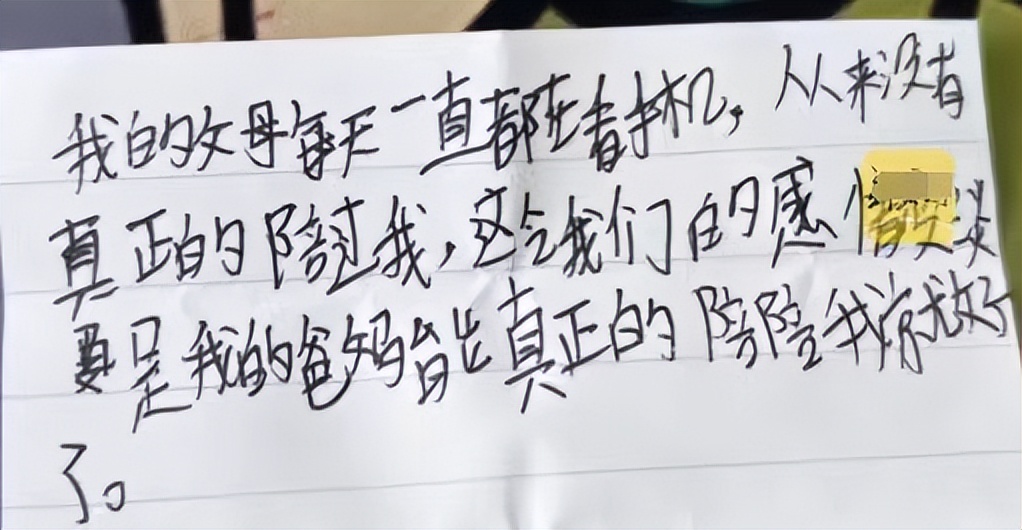 我的父母每天一直都在看手机，从来没有
真正的陪过我，这令我们的感情变淡
要是我的爸妈能真正的陪陪我就好
了。